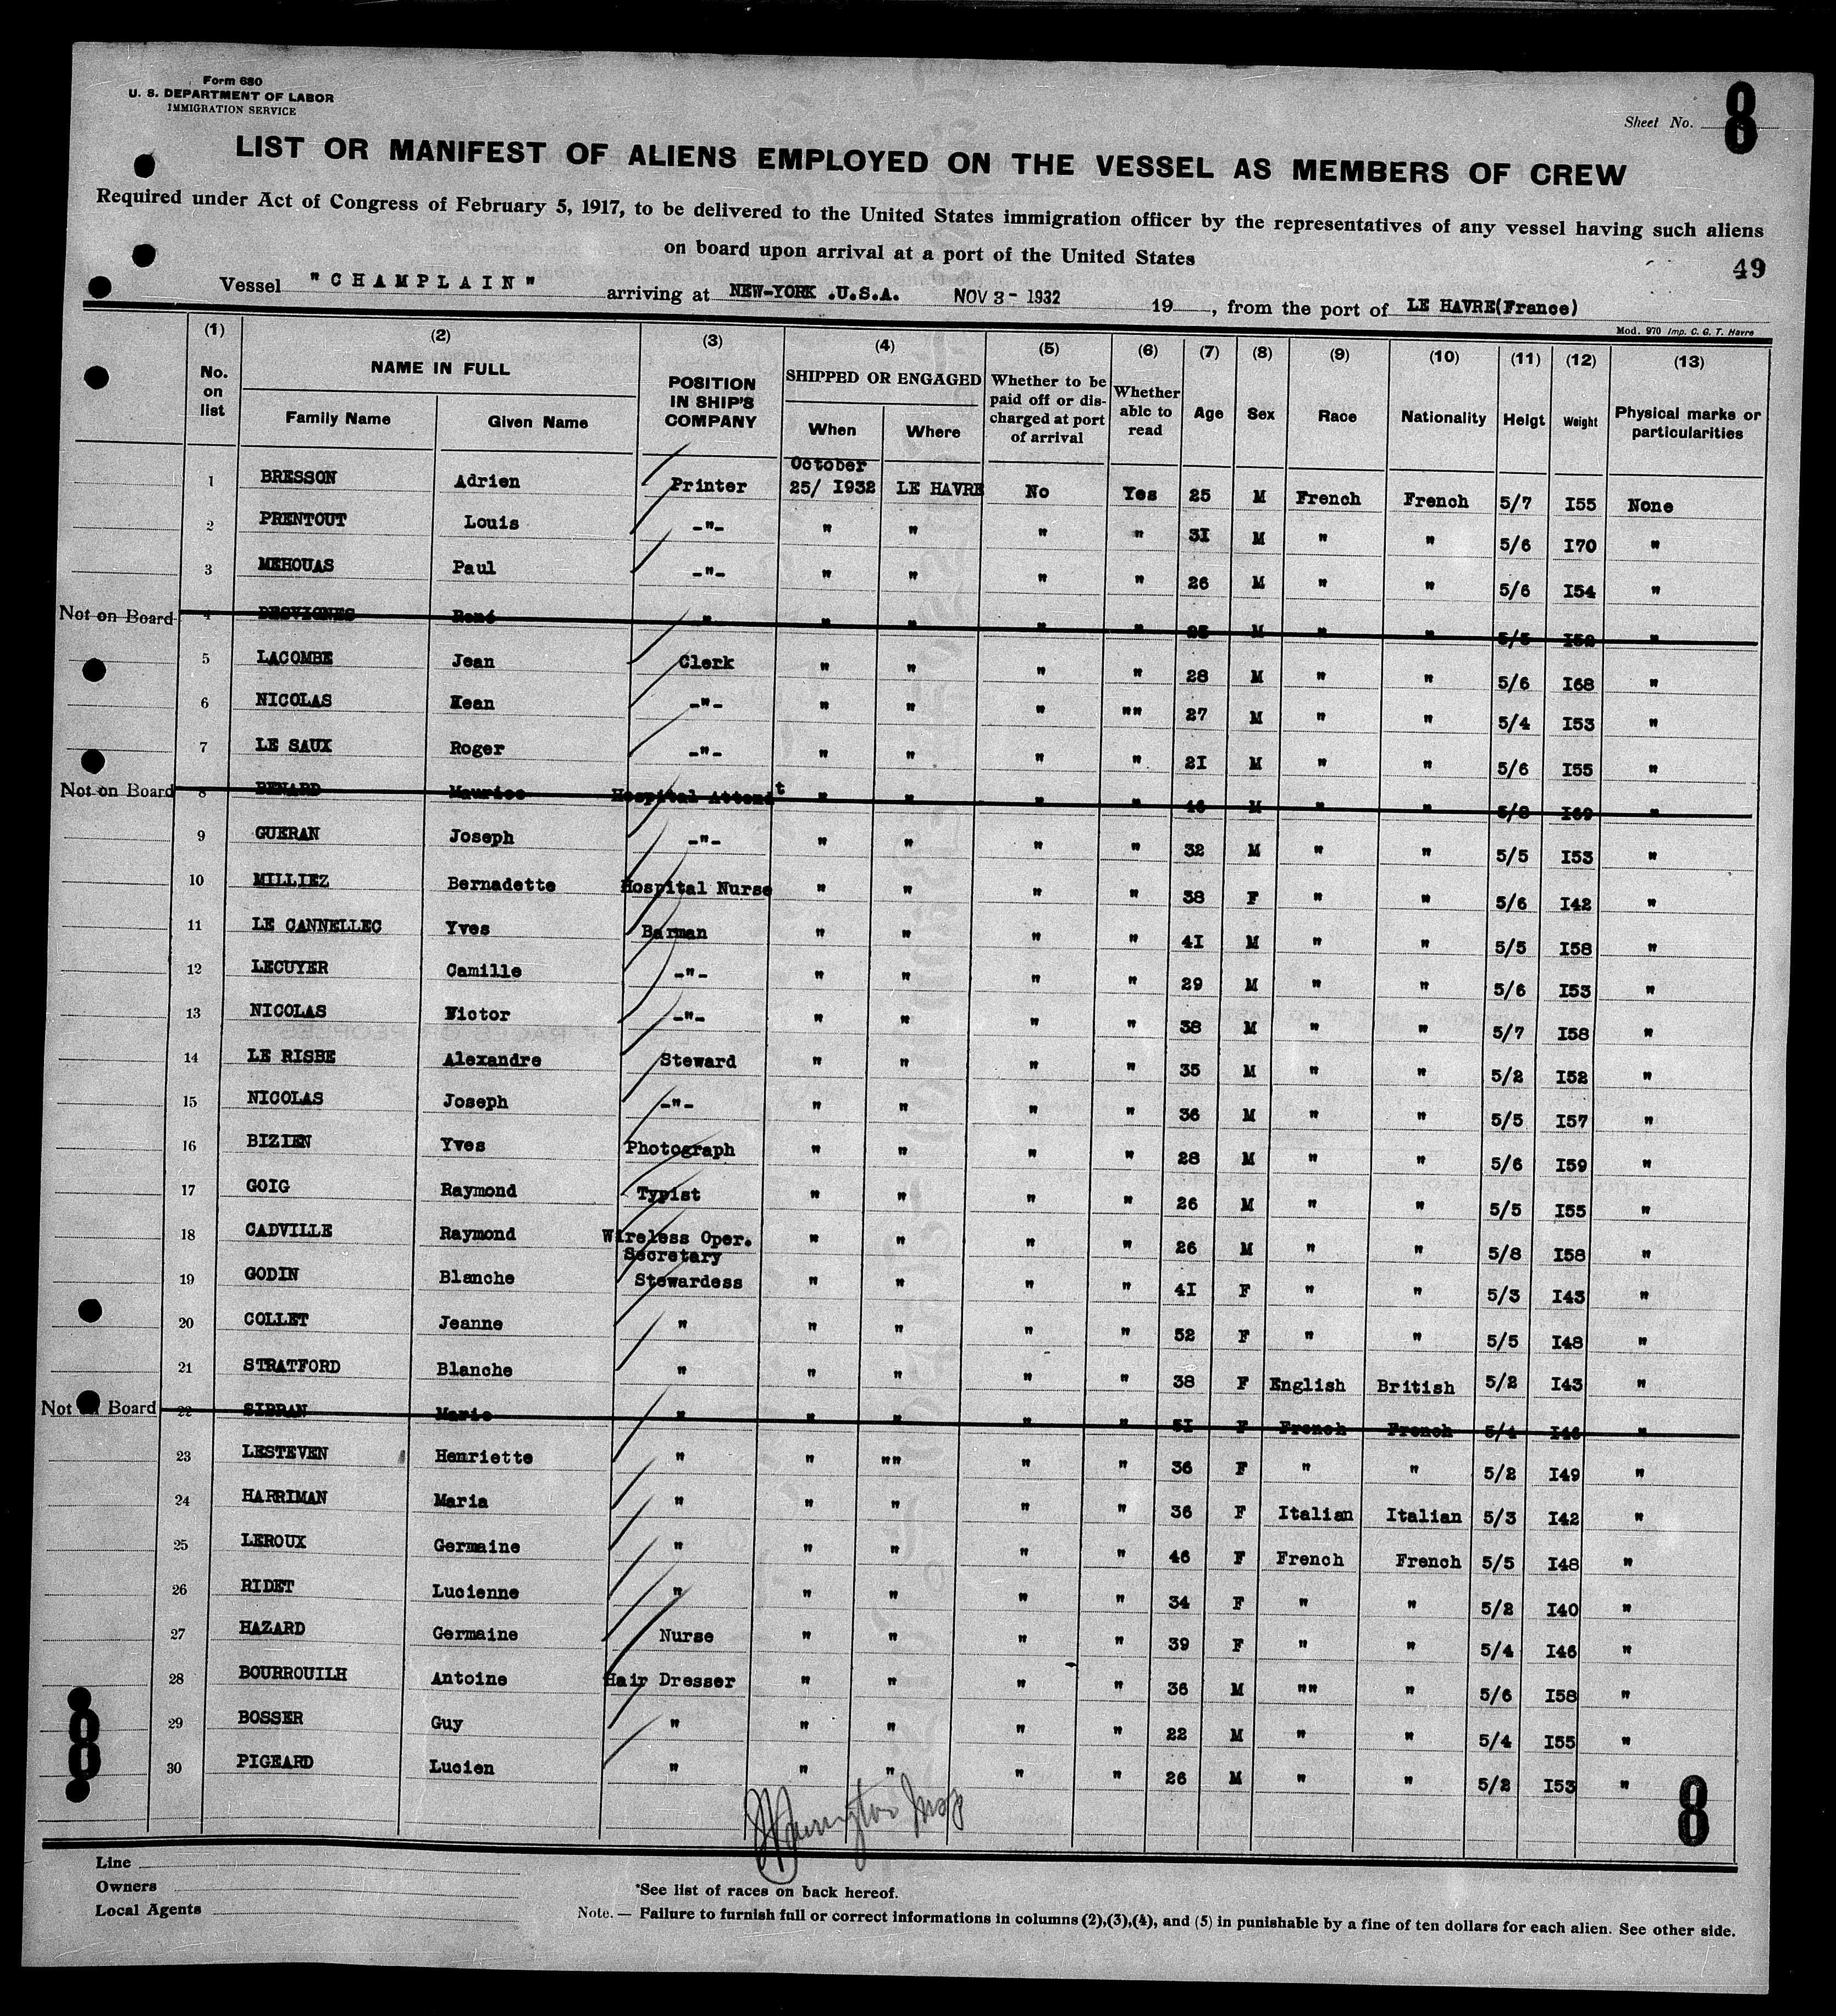 Form 680
U. S. DEPARTMENT OF LABOR
IMMIGRATION SERVICE
Sheet No. 8
LIST OR MANIFEST OF ALIENS EMPLOYED ON THE VESSEL AS MEMBERS OF CREW
Required under Act of Congress of February 5, 1917, to be delivered to the United States immigration officer by the representatives of any vessel having such aliens
on board upon arrival at a port of the United States
49
Vessel "CHAMPLAIN" arriving at NEW-YORK .U.S.A. NOV 3 - 1932 19 , from the port of LE HAVRE(France)
Mod. 970 Imp. C. G. T. Havre
(1) (2) (3) (4) (5) (6) (7) (8) (9) (10) (11) (12) (13)
No. on list NAME IN FULL Family Name Given Name POSITION IN SHIP'S COMPANY SHIPPED OR ENGAGED When Where Whether to be paid off or discharged at port of arrival Whether able to read Age Sex Race Nationality Heigt Weight Physical marks or particularities
October
1 BRESSON Adrien Printer 25/ I932 LE HAVRE No Yes 25 M French French 5/7 I55 None
2 PRENTOUT Louis -"- " " " " 3I M " " 5/6 I70 "
3 MEHOUAS Paul -"- " " " " 26 M " " 5/6 I54 "
Not on Board 4 DESVIGNES René " " " " " M " " 5/5 "
5 LACOMBE Jean Clerk " " " " 28 M " " 5/6 I68 "
6 NICOLAS Kean -"- " " " "" 27 M " " 5/4 I53 "
7 LE SAUX Roger -"- " " " " 2I M " " 5/6 I55 "
Not on Board 8 BENARD Maurice Hospital Attendt " " " " M " " "
9 GUERAN Joseph -"- " " " " 32 M " " 5/5 I53 "
10 MILLIEZ Bernadette Hospital Nurse " " " " 38 F " " 5/6 I42 "
11 LE CANNELLEC Yves Barman " " " " 4I M " " 5/5 I58 "
12 LECUYER Camille -"- " " " " 29 M " " 5/6 I53 "
13 NICOLAS Victor -"- " " " " 38 M " " 5/7 I58 "
14 LE RISBE Alexandre Steward " " " " 35 M " " 5/2 I52 "
15 NICOLAS Joseph -"- " " " " 36 M " " 5/5 I57 "
16 BIZIEN Yves Photograph " " " " 28 M " " 5/6 I59 "
17 GOIG Raymond Typist " " " " 26 M " " 5/5 I55 "
18 CADVILLE Raymond Wireless Oper. " " " " 26 M " " 5/8 I58 "
Secretary
19 GODIN Blanche Stewardess " " " " 4I F " " 5/3 I43 "
20 COLLET Jeanne " " " " " 52 F " " 5/5 I48 "
21 STRATFORD Blanche " " " " " 38 F English British 5/2 I43 "
Not on Board 22 SIBRAN Marie " " " " " 5I F French French 5/4 I46 "
23 LESTEVEN Henriette " " "" " " 36 F " " 5/2 I49 "
24 HARRIMAN Maria " " " " " 36 F Italian Italian 5/3 I42 "
25 LEROUX Germaine " " " " " 46 F French French 5/5 I48 "
26 RIDET Lucienne " " " " " 34 F " " 5/2 I40 "
27 HAZARD Germaine Nurse " " " " 39 F " " 5/4 I46 "
28 BOURROUILH Antoine Hair Dresser " " " " 36 M "" " 5/6 I58 "
29 BOSSER Guy " " " " " 22 M " " 5/4 I55 "
30 PIGEARD Lucien " " " " " 26 M " " 5/2 I53 "
8
8
Line
Owners
Local Agents
*See list of races on back hereof.
Note. — Failure to furnish full or correct informations in columns (2),(3),(4), and (5) in punishable by a fine of ten dollars for each alien. See other side.